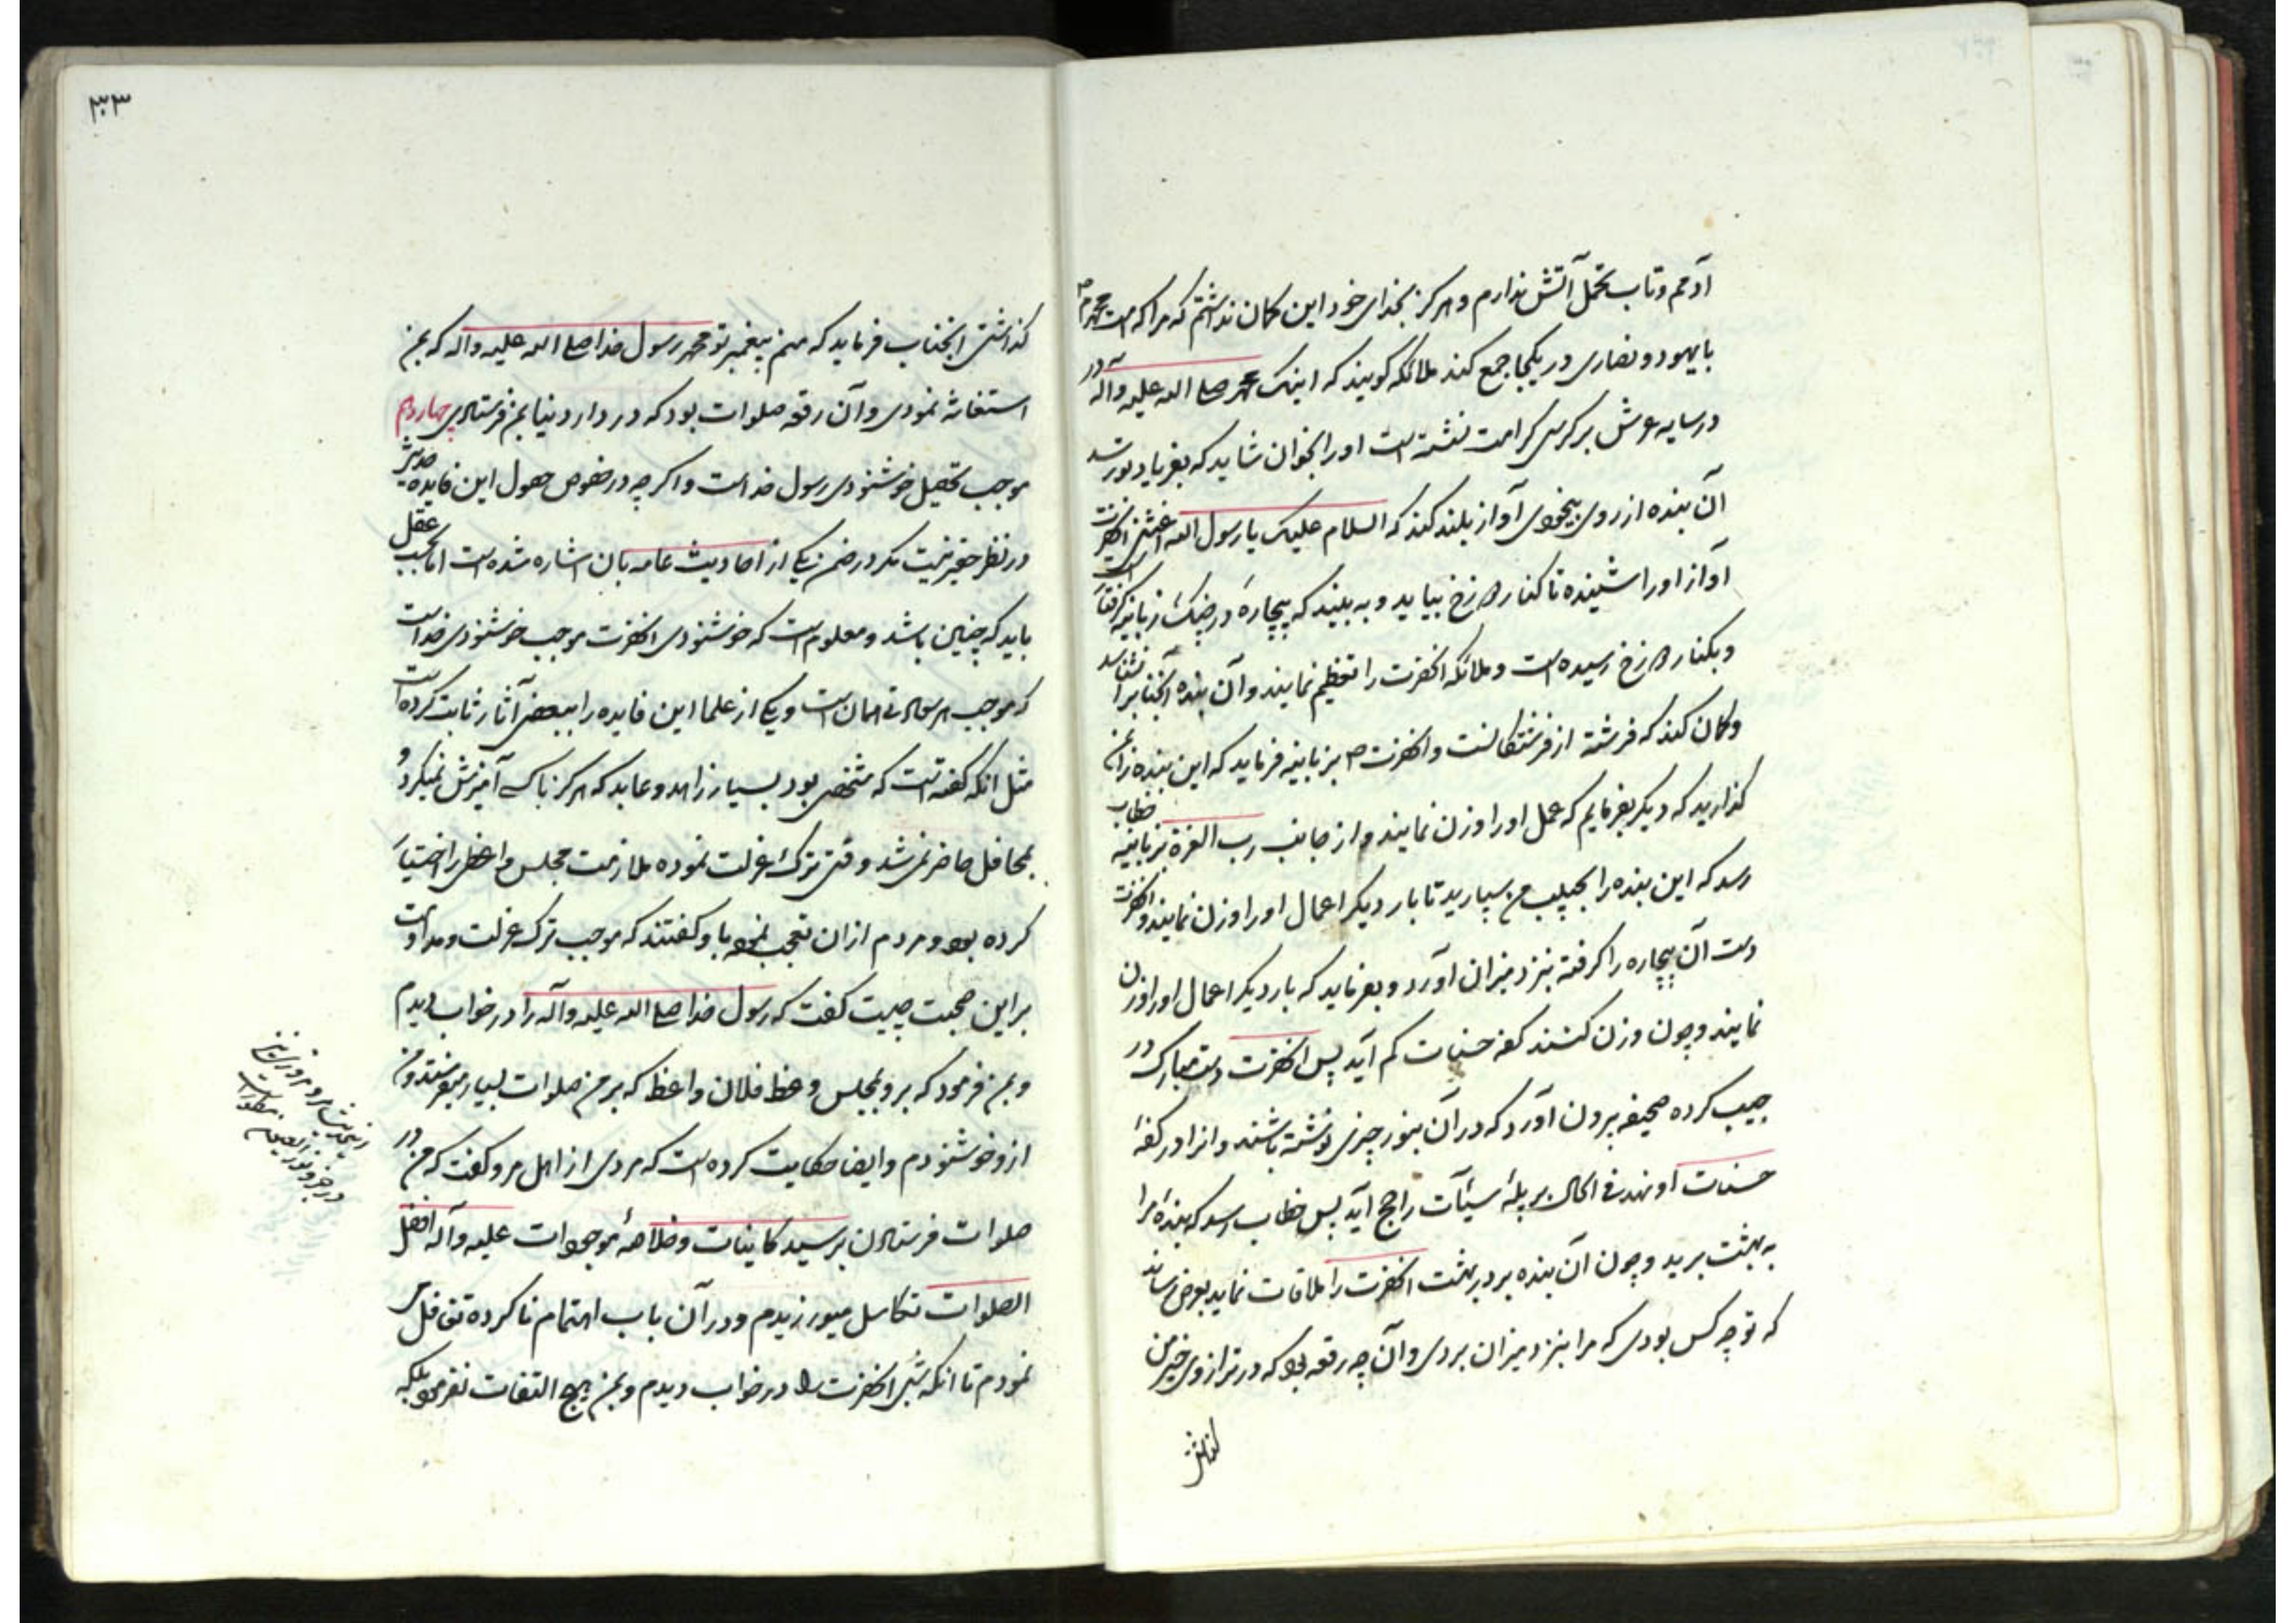 آدمم و تاب تحمل آتش ندارم و هرکز بخدای خود این کمان نداشتم که مرا که امت محمدم
با یهود و نصاری در یکجا جمع کند ملائکه کویند که اینک محمد صلی الله علیه وآله
در سایه عرش بر کرسی کرامت نشسته است او را بخوان شاید که بفریاد تو رسد
آن بنده از روی بیخودی آواز بلند کند که السلام علیک یا رسول الله اغثنی آنحضرت
آواز او را شنیده تا کنار دوزخ بیاید و به بیند که بیچارۀ در چنک زبانیه کرفتار است
و بکنار دوزخ رسیده است و ملائکه آنحضرت را تعظیم نمایند و آن بنده آنجنابرا نشناسد
و کمان کند که فرشته از فرشتکانست و آنحضرت ص بزبانیه فرماید که این بنده را بمن
کذارید که دیکر بفرمایم که عمل او را وزن نمایند و از جانب رب العزة بزبانیه خطاب
رسد که این بنده را بحبیب من بسپارید تا بار دیکر اعمال او را وزن نمایند و آنحضرت
دست آن بیچاره را کرفته بنزد میزان آورد و بفرماید که بار دیکر اعمال او را وزن
نمایند و چون وزن کنند کفه حسنات کم آید پس آنحضرت دست مبارک در
جیب کرده صحیفه بیرون آورد که در آن بنور چیزی نوشته باشند و آنرا در کفۀ
حسنات او نهد فی الحال بر پلۀ سیئات راجح آید پس خطاب رسد که بندۀ مرا
به بهشت برید و چون آن بنده بر در بهشت آنحضرت را ملاقات نماید بعرض رساند
که تو چه کس بودی که مرا بنزد میزان بردی و آن چه رقعه بود که در ترازوی خیر من
۳۰۳
کذاشتی آنجناب فرماید که منم پیغمبر تو محمد رسول خدا صلی الله علیه وآله که بمن
استغاثه نمودی و آن رقعه صلوات بود که در دار دنیا بمن فرستادی چهاردهم
موجب تحصیل خوشنودی رسول خداست و اکرچه در خصوص حصول این فایده حدیثی
در نظر حقیر نیست مکر در ضمن یکی از احادیث عامه بآن اشاره شده است اما بحسب عقل
باید که چنین باشد و معلوم است که خوشنودی آنحضرت موجب خوشنودی خداست
که موجب هر سعادتی همان است و یکی از علما این فایده را ببعضی آثار ثابت کرده است
مثل آنکه کفته است که شخصی بود بسیار زاهد و عابد که هرکز با کسی آمیزش نمیکرد و
بمحافل حاضر نمی شد وقتی ترک عزلت نموده ملازمت مجلس واعظی را اختیار
کرده بود و مردم از آن تعجب نموده باو کفتند که موجب ترک عزلت و مداومت
بر این صحبت چیست کفت که رسول خدا صلی الله علیه وآله را در خواب دیدم
و بمن فرمود که برو بمجلس وعظ فلان واعظ که بر من صلوات بسیار میفرستد و من
از و خوشنودم و ایضا حکایت کرده است که مردی از اهل مرو کفت که من در
صلوات فرستادن بر سید کاینات و خلاصۀ موجودات علیه وآله افضل
الصلوات تکاسل میورزیدم و در آن باب اهتمام نا کرده تغافل
نمودم تا آنکه شبی آنحضرت را در خواب دیدم و بمن هیچ التفات نفرمود بلکه